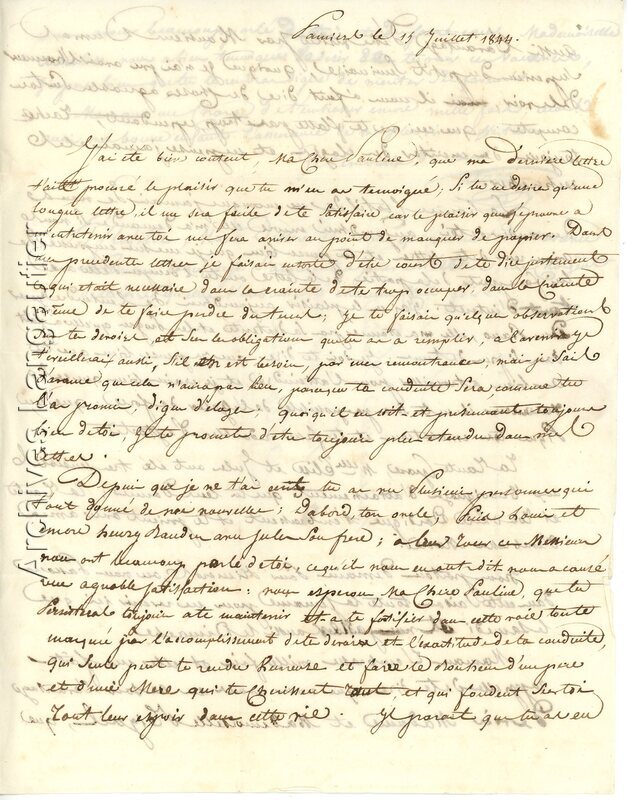 Pamiers le 15 Juillet 1844.
J'ai été bien content, Ma Chere Pauline, que ma derniere lettre
t'ait procuré le plaisir que tu m'en as temoigné; Si tu ne desires qu'une
longue lettre, il me sera facile de te satisfaire, car le plaisir que j'eprouve à
m'entretenir avec toi me fera arriver au point de manquer de papier. Dans
ma precedente lettre je faisais ensorte d'être court, de te dire justement
ce qui était necessaire dans la crainte de te trop occuper, dans la crainte
même de te faire perdre du tems; je te faisais quelques observations
sur tes devoirs et sur les obligations que tu as à remplir, à l'avenir je
t'eveillerai aussi, s'il en est besoin, par mes remontrances, mais je sais
d'avance que cela n'aura pas lieu, parceque ta conduite sera, comme tu
l'as promis, digne d'eloges; quoiqu'il en soit et présumant toujours
bien de toi, je te promets d'être toujours plus etendu dans mes
lettres.
Depuis que je ne t'ai ecrit, tu as vu plusieurs personnes qui
t'ont donné de nos nouvelles; D'abord, ton oncle, puis Louis et
encore henry Baudru avec Jules son frere; à leur tour ces Messieurs
nous ont beaucoup parlé de toi, ce qu'ils nous en ont dit nous a causé
une agreable satisfaction; nous esperons, Ma Chere Pauline, que tu
persisteras toujours à te maintenir et à te fortifier dans cette voie toute
marquée par l'accomplissement de tes devoirs et l'exactitude de ta conduite,
qui seule peut te rendre heureuse et faire le bonheur d'un pere
et d'une Mere qui te cherissent tant et qui fondent sur toi
tout leur espoir dans cette vie. Il parait que tu as eu
Archives Lengautier